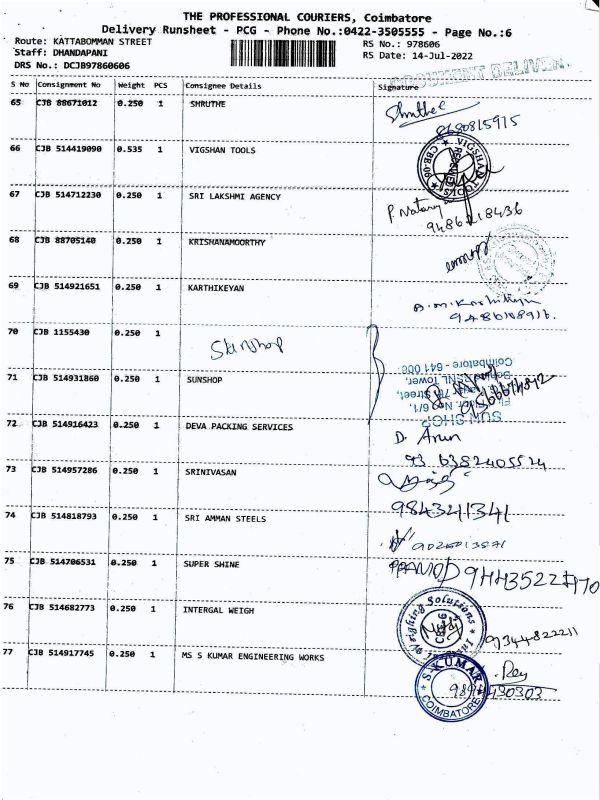 THE PROFESSIONAL COURIERS, Coimbatore
Delivery Runsheet - PCG - Phone No.:0422-3505555 - Page No.:6
Route: KATTABOMMAN STREET RS No.: 978606
Staff: DHANDAPANI RS Date: 14-Jul-2022
DRS No.: DCJB97860606
DOCUMENT DELIVER
S No Consignment No Weight PCS Consignee Details Signature
65 CJB 88671012 0.250 1 SHRUTHE Shruthe
8680815915
66 CJB 514419090 0.535 1 VIGSHAN TOOLS VIGSHAN TOOLS
67 CJB 514712230 0.250 1 SRI LAKSHMI AGENCY
68 CJB 88705140 0.250 1 KRISHANAMOORTHY
69 CJB 514921651 0.250 1 KARTHIKEYAN
70 CJB 1155430 0.250 1
71 CJB 514931860 0.250 1 SUNSHOP
SUN SHOP
Coimbatore - 641 006
72 CJB 514916423 0.250 1 DEVA PACKING SERVICES D. Arun
93 6382405524
73 CJB 514957286 0.250 1 SRINIVASAN
9843241341
74 CJB 514818793 0.250 1 SRI AMMAN STEELS
75 CJB 514706531 0.250 1 SUPER SHINE
76 CJB 514682773 0.250 1 INTERGAL WEIGH Weighing Solutions
9344822211
77 CJB 514917745 0.250 1 MS S KUMAR ENGINEERING WORKS S. KUMAR
COIMBATORE